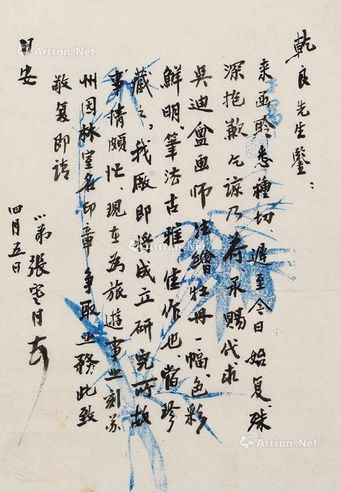 乾良先生鑒：
来函聆悉種切，遲至今日始复殊
深抱歉乞諒乃荷承賜代求
吳迪盦画師法繪牡丹一幅色彩
鮮明筆法古雅佳作也當珍
藏之，我廠即將成立研究所故
事情頗忙、現在為旅遊事业刻苏
州园林堂名印章爭取业務此致
敬复即請
日安
小弟張寒月上
四月五日
Artron.Net
Artron.Net
Artron.Net
Artron.Net